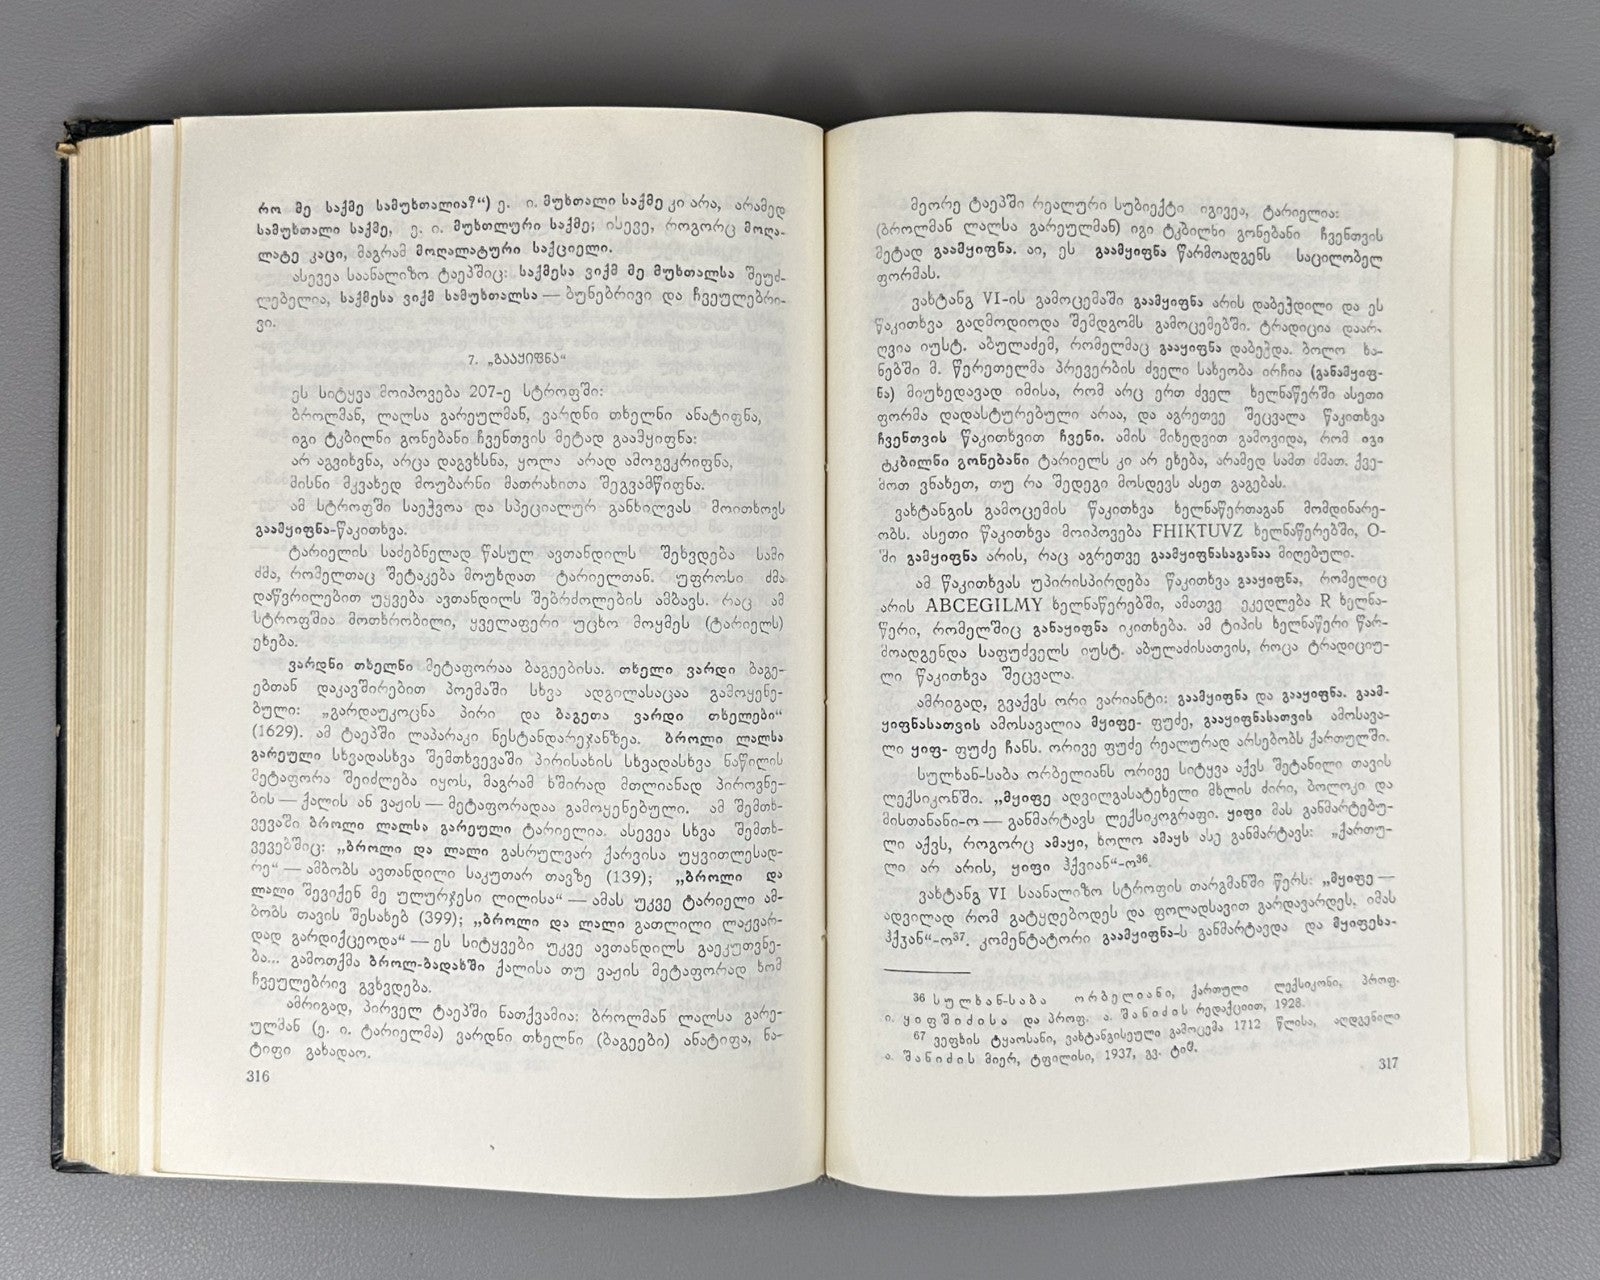 რო მე საქმე სამუხთალია?“) ე. ი. მუხთალი საქმე კი არა, არამედ
სამუხთალი საქმე, ე. ი. მუხთლური საქმე; ისევე, როგორც მოღა-
ლატე კაცი, მაგრამ მოღალატური საქციელი.
ასევეა საანალიზო ტაეპშიც: საქმესა ვიქმ მე მუხთალსა შეუძ-
ლებელია, საქმესა ვიქმ სამუხთალსა — ბუნებრივი და ჩვეულებრი-
ვი.
7. „გააყიფნა“
ეს სიტყვა მოიპოვება 207-ე სტროფში:
ბროლმან, ლალსა გარეულმან, ვარდნი თხელნი ანატიფნა,
იგი ტკბილნი გონებანი ჩვენთვის მეტად გაამყიფნა:
არ აგვიხვნა, არცა დაგვხსნა, ყოლა არად ამოგვკრიფნა,
მისნი მკვახედ მოუბარნი მათრახითა შეგვამწიფნა.
ამ სტროფში საეჭვოა და სპეციალურ განხილვას მოითხოვს
გაამყიფნა-წაკითხვა.
ტარიელის საძებნელად წასულ ავთანდილს შეხვდება სამი
ძმა, რომელთაც შეტაკება მოუხდათ ტარიელთან. უფროსი ძმა
დაწვრილებით უყვება ავთანდილს შებრძოლების ამბავს. რაც ამ
სტროფშია მოთხრობილი, ყველაფერი უცხო მოყმეს (ტარიელს)
ეხება.
ვარდნი თხელნი მეტაფორაა ბაგეებისა. თხელი ვარდი ბაგე-
ებთან დაკავშირებით პოემაში სხვა ადგილასაცაა გამოყენე-
ბული: „გარდაუკოცნა პირი და ბაგეთა ვარდი თხელები“
(1629). ამ ტაეპში ლაპარაკი ნესტანდარეჯანზეა. ბროლი ლალსა
გარეული სხვადასხვა შემთხვევაში პირისახის სხვადასხვა ნაწილის
მეტაფორა შეიძლება იყოს, მაგრამ ხშირად მთლიანად პიროვნე-
ბის — ქალის ან ვაჟის — მეტაფორადაა გამოყენებული. ამ შემთხ-
ვევაში ბროლი ლალსა გარეული ტარიელია. ასევეა სხვა შემთხ-
ვევებშიც: „ბროლი და ლალი გასრულვარ ქარვისა უყვითლესად-
რე“ — ამბობს ავთანდილი საკუთარ თავზე (139); „ბროლი და
ლალი შევიქენ მე ულურჯესი ლილისა“ — ამას უკვე ტარიელი ამ-
ბობს თავის შესახებ (399); „ბროლი და ლალი გათლილი ლაჟვარ-
დად გარდიქცეოდა“ — ეს სიტყვები უკვე ავთანდილს გაეკუთვნე-
ბა... გამოთქმა ბროლ-ბადახში ქალისა თუ ვაჟის მეტაფორად ხომ
ჩვეულებრივ გვხვდება.
ამრიგად, პირველ ტაეპში ნათქვამია: ბროლმან ლალსა გარე-
ულმან (ე. ი. ტარიელმა) ვარდნი თხელნი (ბაგეები) ანატიფა, ნა-
ტიფი გახადაო.
316
მეორე ტაეპში რეალური სუბიექტი იგივეა, ტარიელია:
(ბროლმან ლალსა გარეულმან) იგი ტკბილხი გონებანი ჩვენთვის
მეტად გაამყიფნა. აი, ეს გაამყიფნა წარმოადგენს საცილობელ
ფორმას.
ვახტანგ VI-ის გამოცემაში გაამყიფნა არის დაბეჭდილი და ეს
წაკითხვა გადმოდიოდა შემდგომს გამოცემებში. ტრადიცია დაარ-
ღვია იუსტ. აბულაძემ, რომელმაც გააყიფნა დაბეჭდა. ბოლო ხა-
ნებში მ. წერეთელმა პრევერბის ძველი სახეობა ირჩია (განამყიფ-
ნა) მიუხედავად იმისა, რომ არც ერთ ძველ ხელნაწერში ასეთი
ფორმა დადასტურებული არაა, და აგრეთვე შეცვალა წაკითხვა
ჩვენთვის წაკითხვით ჩვენი. ამის მიხედვით გამოვიდა, რომ იგი
ტკბილნი გონებანი ტარიელს კი არ ეხება, არამედ სამთ ძმათ. ქვე-
მოთ ვნახეთ, თუ რა შედეგი მოსდევს ასეთ გაგებას.
ვახტანგის გამოცემის წაკითხვა ხელნაწერთაგან მომდინარე-
ობს. ასეთი წაკითხვა მოიპოვება FHIKTUVZ ხელნაწერებში, O-
ში გამყიფნა არის, რაც აგრეთვე გაამყიფნასაგანაა მიღებული.
ამ წაკითხვას უპირისპირდება წაკითხვა გააყიფნა, რომელიც
არის ABCEGILMY ხელნაწერებში, ამათვე ეკედლება R ხელნა-
წერი, რომელშიც განაყიფნა იკითხება. ამ ტიპის ხელნაწერი წარ-
მოადგენდა საფუძველს იუსტ. აბულაძისათვის, როცა ტრადიციუ-
ლი წაკითხვა შეცვალა.
ამრიგად, გვაქვს ორი ვარიანტი: გაამყიფნა და გააყიფნა. გაამ-
ყიფნასათვის ამოსავალია მყიფე- ფუძე, გააყიფნასათვის ამოსავა-
ლი ყიფ- ფუძე ჩანს. ორივე ფუძე რეალურად არსებობს ქართულში.
სულხან-საბა ორბელიანს ორივე სიტყვა აქვს შეტანილი თავის
ლექსიკონში. „მყიფე ადვილგასატეხელი მხლის ძირი, ბოლოკი და
მისთანანი-ო — განმარტავს ლექსიკოგრაფი. ყიფი მას განმარტებუ-
ლი აქვს, როგორც ამაყი, ხოლო ამაყს ასე განმარტავს: „ქართუ-
ლი არ არის, ყიფი ჰქვიან“-ო³⁶.
ვახტანგ VI საანალიზო სტროფის თარგმანში წერს: „მყიფე —
ადვილად რომ გატყდებოდეს და ფოლადსავით გარდავარდეს, იმას
ჰქჳან“-ო³⁷. კომენტატორი გაამყიფნა-ს განმარტავდა და მყიფესა-
36 სულხან-საბა ორბელიანი, ქართული ლექსიკონი, პროფ.
ი. ყიფშიძისა და პროფ. ა. შანიძის რედაქციით, 1928.
67 ვეფხის ტყაოსანი, ვახტანგისეული გამოცემა 1712 წლისა, აღდგენილი
ა. შანიძის მიერ, ტფილისი, 1937, გვ.
317